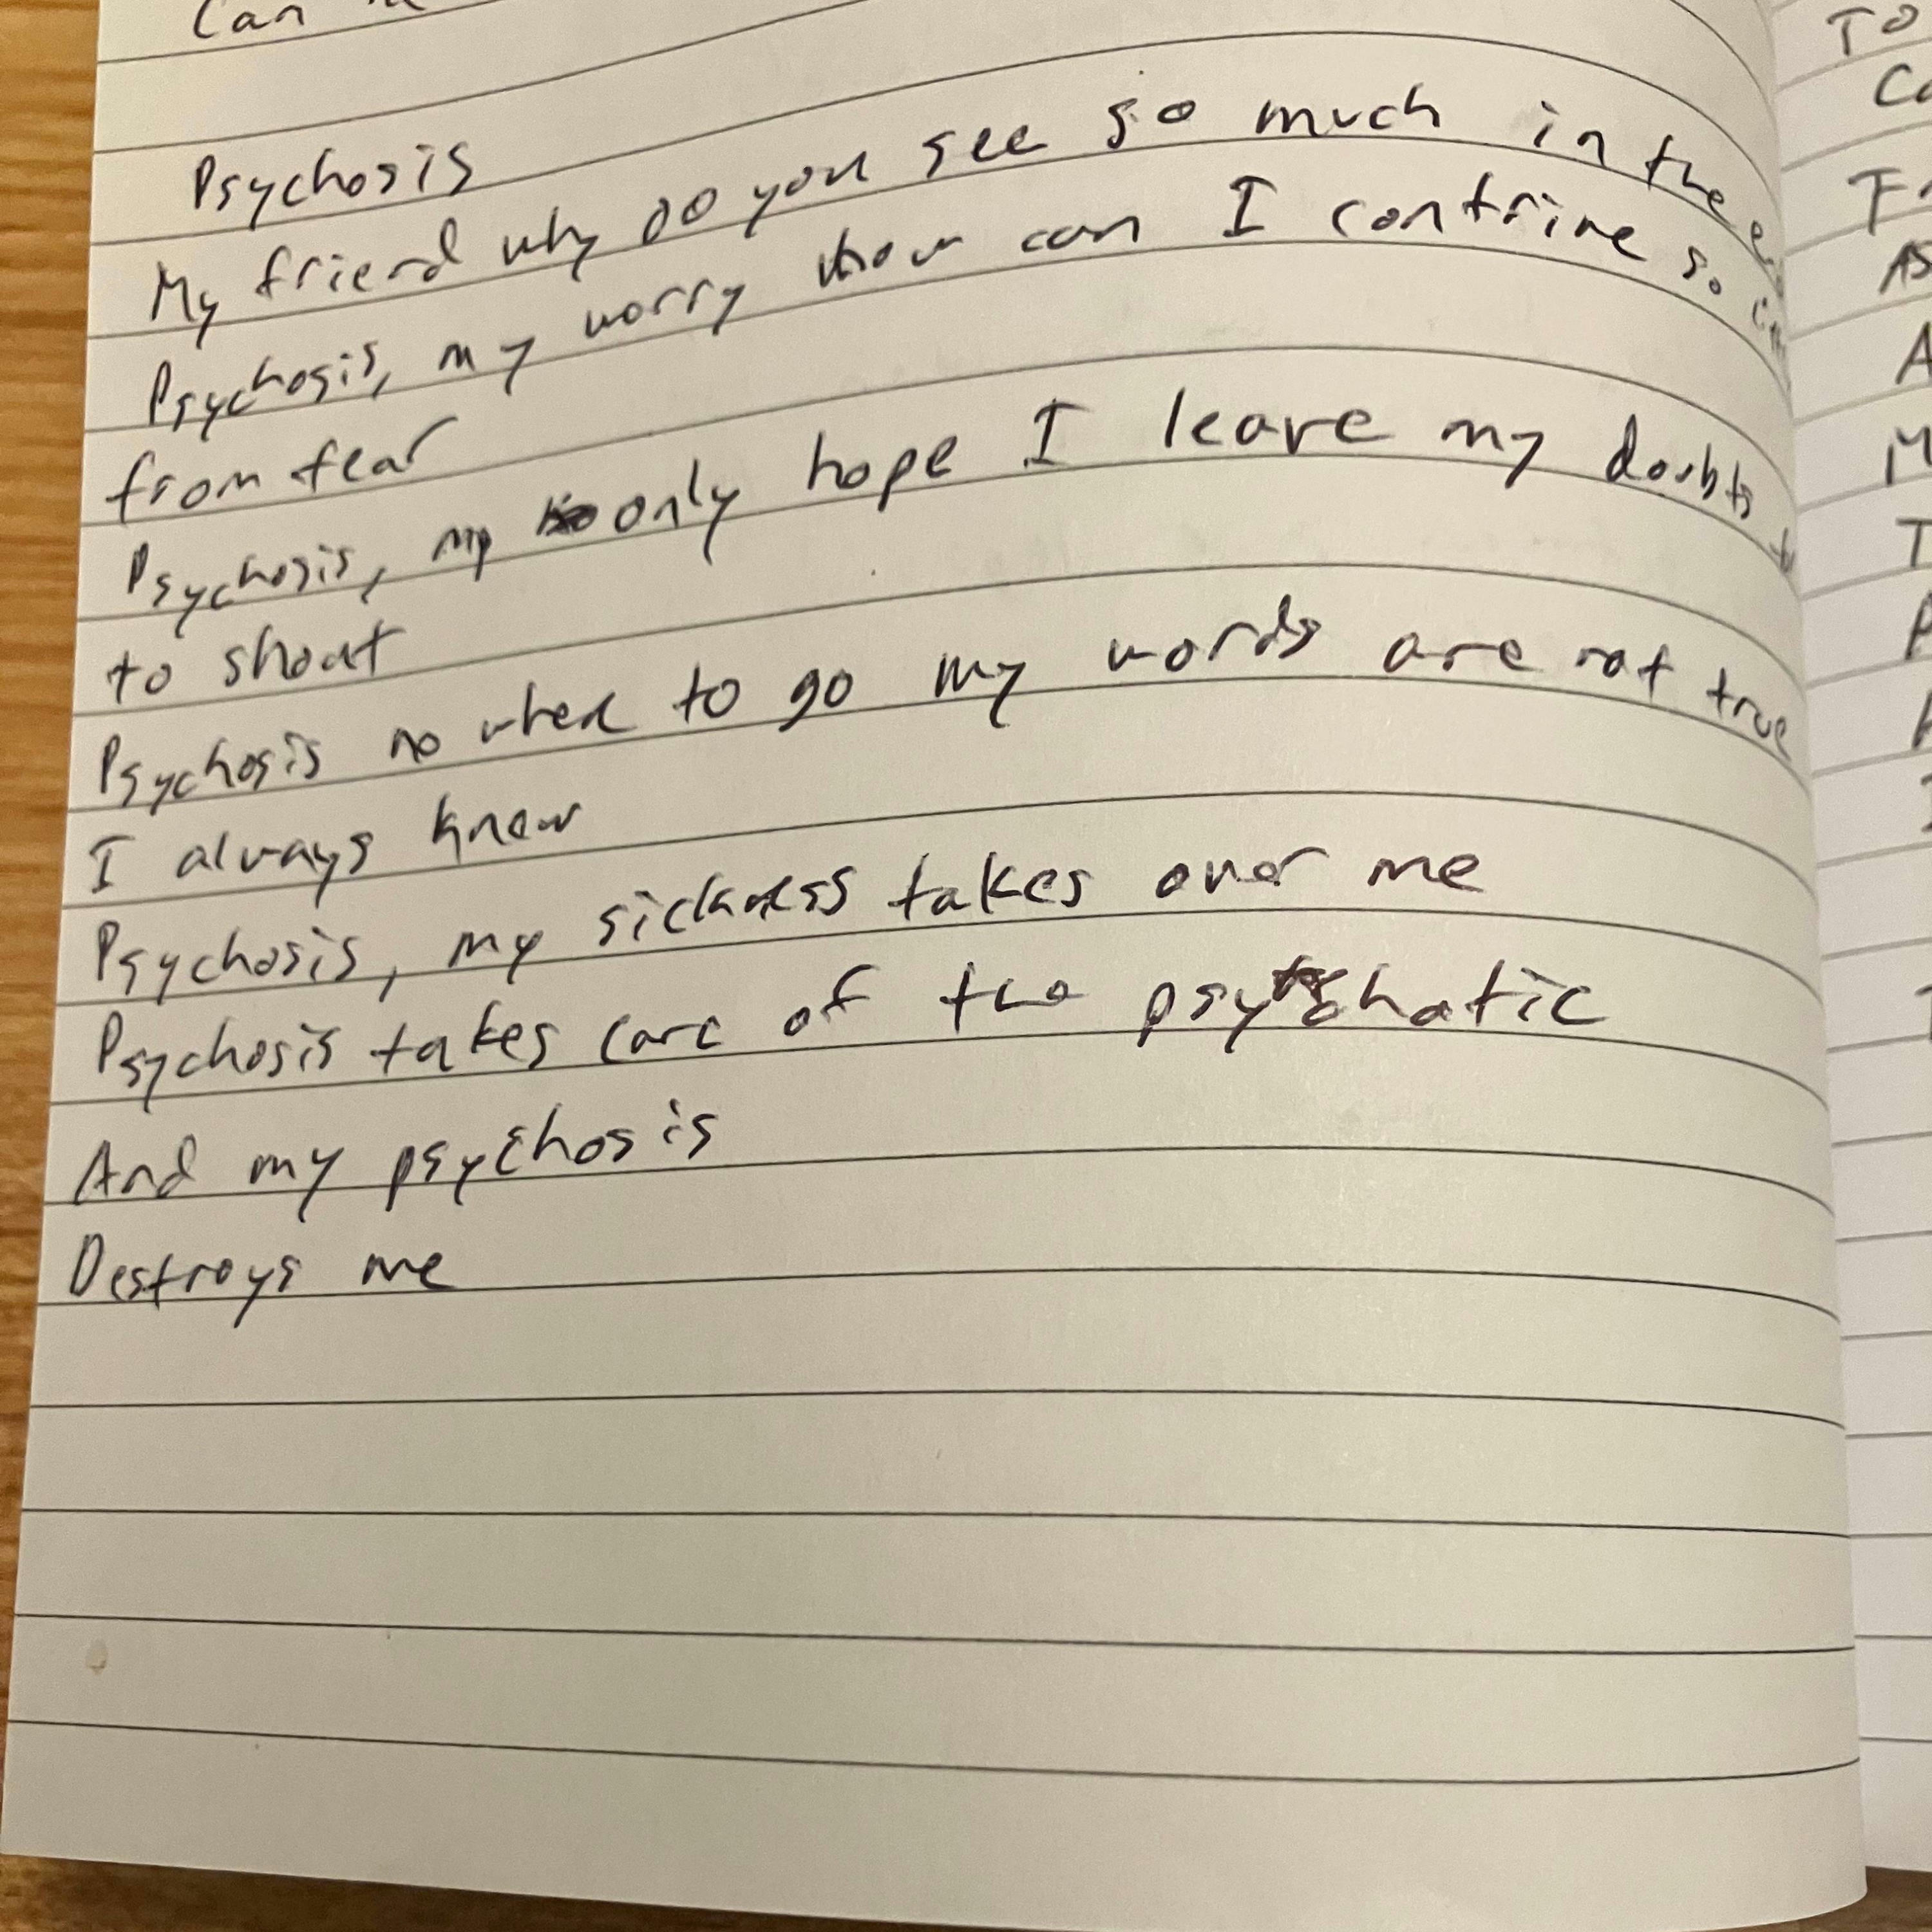 Can
Psychosis
My friend why do you see so much in the
Psychosis, my worry how can I contrive so
from fear
Psychosis, my only hope I leave my doubts
to shout
Psychosis no where to go my words are not true
I always knew
Psychosis, my sickness takes over me
Psychosis takes care of the psychotic
And my psychosis
Destroys me
TO